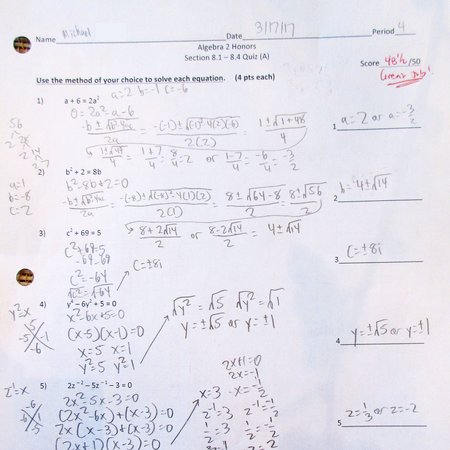 Name Michael Date 3/17/17 Period 4
Algebra 2 Honors
Section 8.1 – 8.4 Quiz (A)
Score 48½/50
Great Job!
Use the method of your choice to solve each equation. (4 pts each)
1) a + 6 = 2a² a=2 b=-1 c=-6
0 = 2a² - a - 6
-b ± √b²-4ac / 2a = -(-1) ± √(-1)²-4(2)(-6) / 2(2) = 1 ± √1+48 / 4
1 ± √49 / 4 = 1+7 / 4 = 8/4 = 2 or 1-7 / 4 = -6/4 = -3/2
1 a=2 or a=-3/2
2) b² + 2 = 8b
b² - 8b + 2 = 0
a=1
b=-8
c=2
-b ± √b²-4ac / 2a = -(-8) ± √(-8)²-4(1)(2) / 2(1) = 8 ± √64-8 / 2 = 8 ± √56 / 2
8+2√14 / 2 or 8-2√14 / 2 = 4 ± √14
2 b=4±√14
3) c² + 69 = 5
c² + 69 = 5
-69 -69
c² = -64
√c² = √-64
c = ±8i
3 c=±8i
4) y⁴ – 6y² + 5 = 0
y² = x
x² - 6x + 5 = 0
5
-5 -1
-6
(x-5)(x-1) = 0
x=5 x=1
y²=5 y²=1
√y² = √5 √y² = √1
y = ±√5 or y = ±1
4 y=±√5 or y=±1
5) 2z⁻² – 5z⁻¹ – 3 = 0
z⁻¹ = x
2x² - 5x - 3 = 0
-6
-6
-5
(2x² - 6x) + (x-3) = 0
2x(x-3) + (x-3) = 0
(2x+1)(x-3) = 0
2x+1=0
2x=-1
x=3 x=-1/2
z⁻¹=3 z⁻¹=-1/2
1/z = 3 1/z = -1/2
5 z=1/3 or z=-2